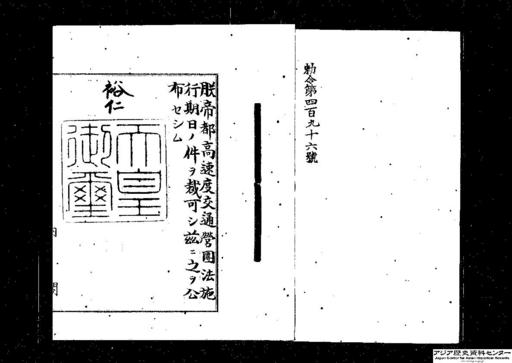 勅令第四百九十六號
朕帝都高速度交通營團法施
行期日ノ件ヲ裁可シ茲ニ之ヲ公
布セシム
裕仁
天皇
御璽
アジア歴史資料センター
Japan Center for Asian Historical Records